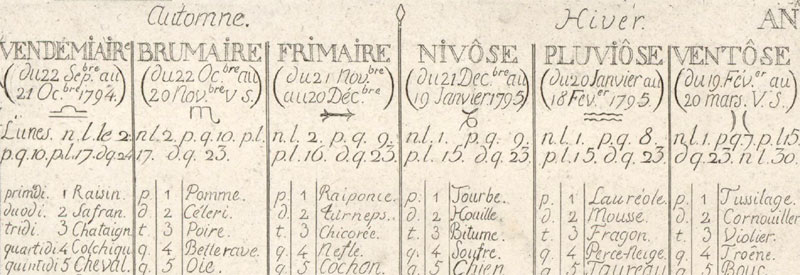 Automne. Hivér. AN
VENDÉMIAIRe BRUMAIRE FRIMAIRE NIVÔSE PLUVIÔSE VENTÔSE
(du 22 Sepbre au (du 22 Ocbre au (du 21 Novbre (du 21 Decbre au (du 20 Janvier au (du 19 Féver au
21 Ocbre 1794.) 20 Novbre V S.) au 20 Décbre) 19 Janvier 1795) 18 Féver 1795.) 20 mars. V. S.)
Lunes. n.l. le 2. n.l. 2, p.q. 10. p.l. n.l. 2. p.q. 9. n.l. 1. p.q. 9. n.l. 1. p.q. 8. n.l. 1. p.q. 7. p.l. 15.
p.q. 10. p.l. 17. d.q. 24 17. d.q. 23. p.l. 16. d.q. 23. p.l. 15. d.q. 23. p.l. 15. d.q. 23 d.q. 23. n.l. 30.
primdi. 1 Raisin. p. 1 Pomme. p. 1 Raiponce. p. 1 Tourbe. p. 1 Lauréole. p. 1 Tussilage.
duodi. 2 Safran. d. 2 Céleri. d. 2 turneps. d. 2 Houille. d. 2 Mousse. d. 2 Cornouiller
tridi. 3 Chataign t. 3 Poire. t. 3 Chicorée. t. 3 Bitume. t. 3 Fragon. t. 3 Violier.
quartidi 4 Colchiqu q. 4 Betterave. q. 4 Nefle. q. 4 Soufre. q. 4 Perce-Neige. q. 4 Troëne.
quintidi 5 Cheval. q. 5 Oie. q. 5 Cochon. q. 5 Chien q. 5 Taureau q. 5 Bouc.